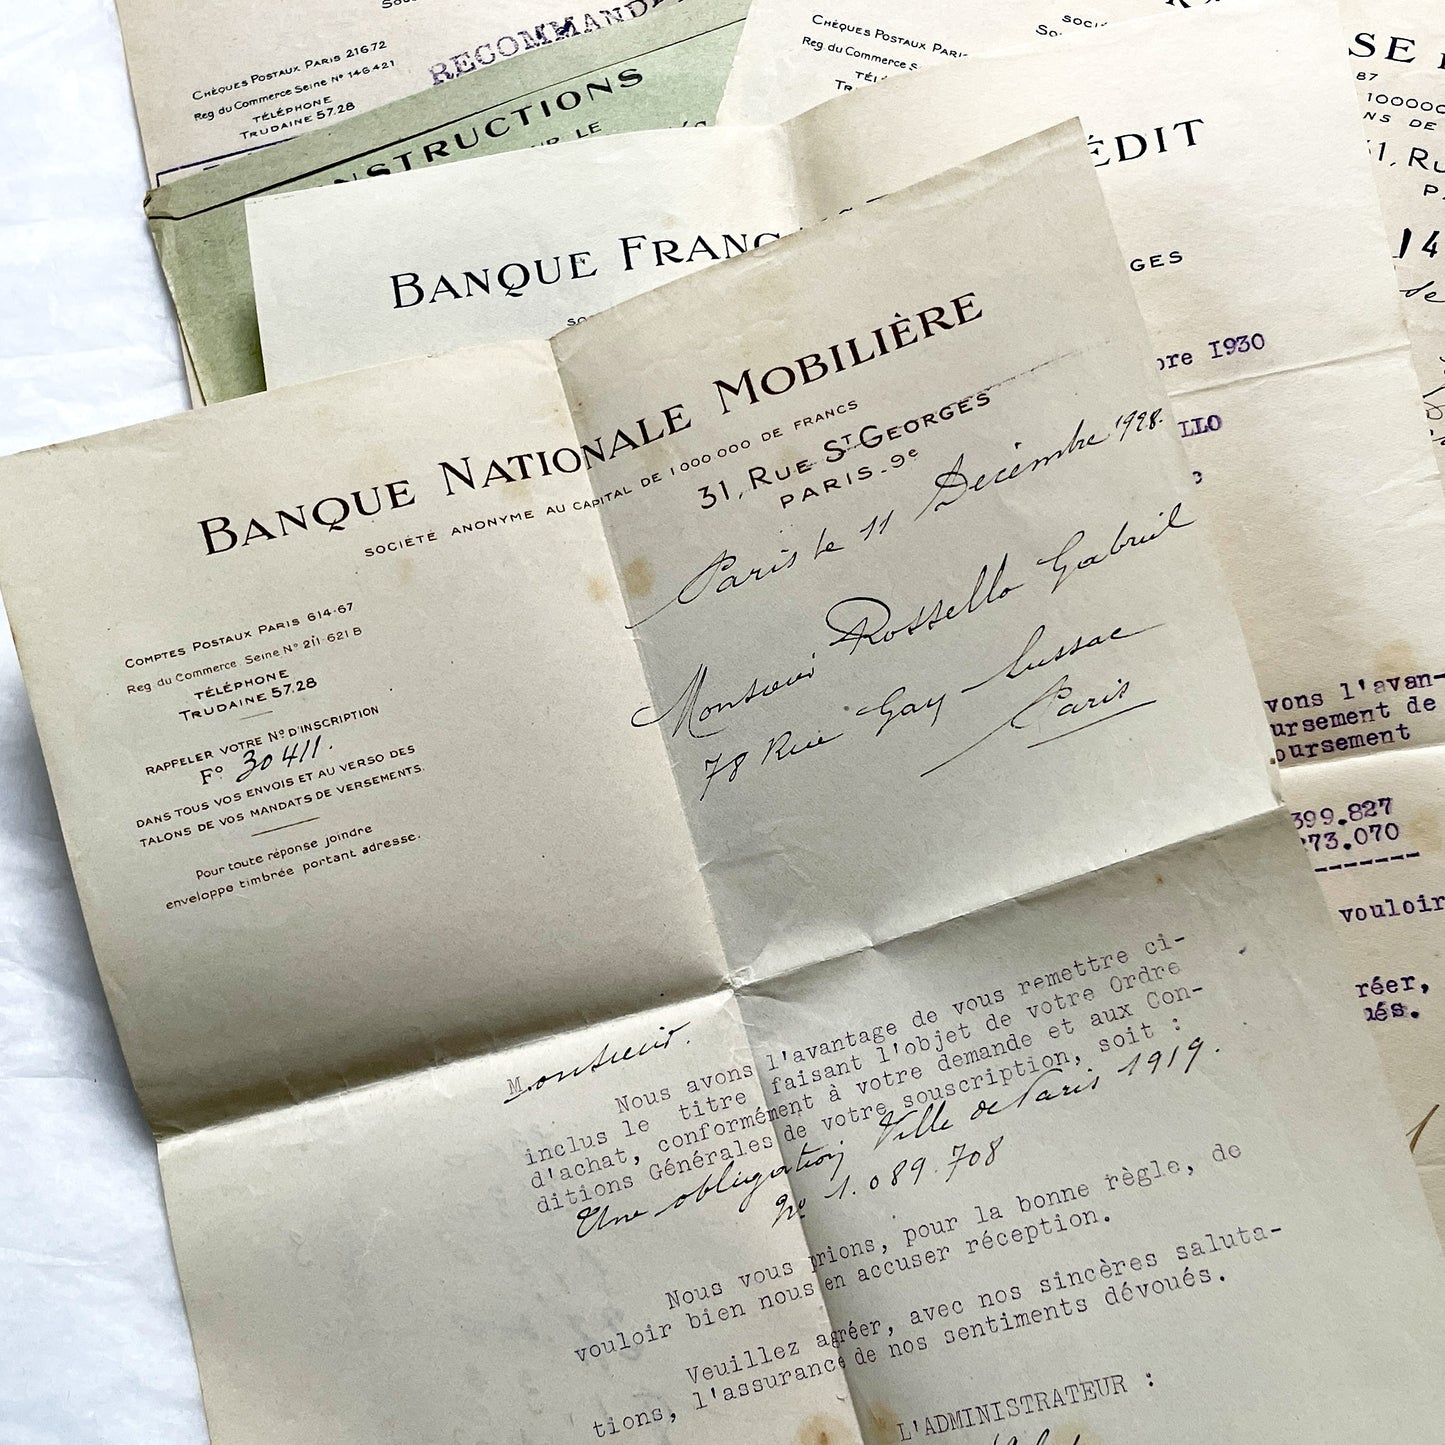 CHÈQUES POSTAUX PARIS 216.72
Reg du Commerce Seine Nº 146.421
TÉLÉPHONE
TRUDAINE 57.28
RECOMMANDÉ
NSTRUCTIONS
UR LE
CHÈQUES POSTAUX PARI
Reg. du Commerce S
TÉL
TRU
SOCI
SE
87
100000
NS DE
1, RU
P
14
de
ÉDIT
GES
BANQUE FRANÇA
SO
bre 1930
LLO
BANQUE NATIONALE MOBILIÈRE
SOCIÉTÉ ANONYME AU CAPITAL DE 1 000 000 DE FRANCS
31, RUE ST GEORGES
PARIS-9e
Paris le 11 Décembre 1928.
Monsieur Rossello Gabriel
78 Rue Gay Lussac
Paris
COMPTES POSTAUX PARIS 614-67
Reg du Commerce Seine Nº 211-621 B
TÉLÉPHONE
TRUDAINE 57.28
RAPPELER VOTRE Nº D'INSCRIPTION
Fº 30411.
DANS TOUS VOS ENVOIS ET AU VERSO DES
TALONS DE VOS MANDATS DE VERSEMENTS.
Pour toute réponse joindre
enveloppe timbrée portant adresse.
Monsieur.
Nous avons l'avantage de vous remettre ci-
inclus le titre faisant l'objet de votre Ordre
d'achat, conformément à votre demande et aux Con-
ditions Générales de votre souscription, soit :
Une obligation Ville de Paris 1919.
Nº 1.089.708
Nous vous prions, pour la bonne règle, de
vouloir bien nous en accuser réception.
Veuillez agréer, avec nos sincères saluta-
tions, l'assurance de nos sentiments dévoués.
L'ADMINISTRATEUR :
vons l'avan-
ursement de
oursement
399.827
73.070
vouloir
réer,
ués.